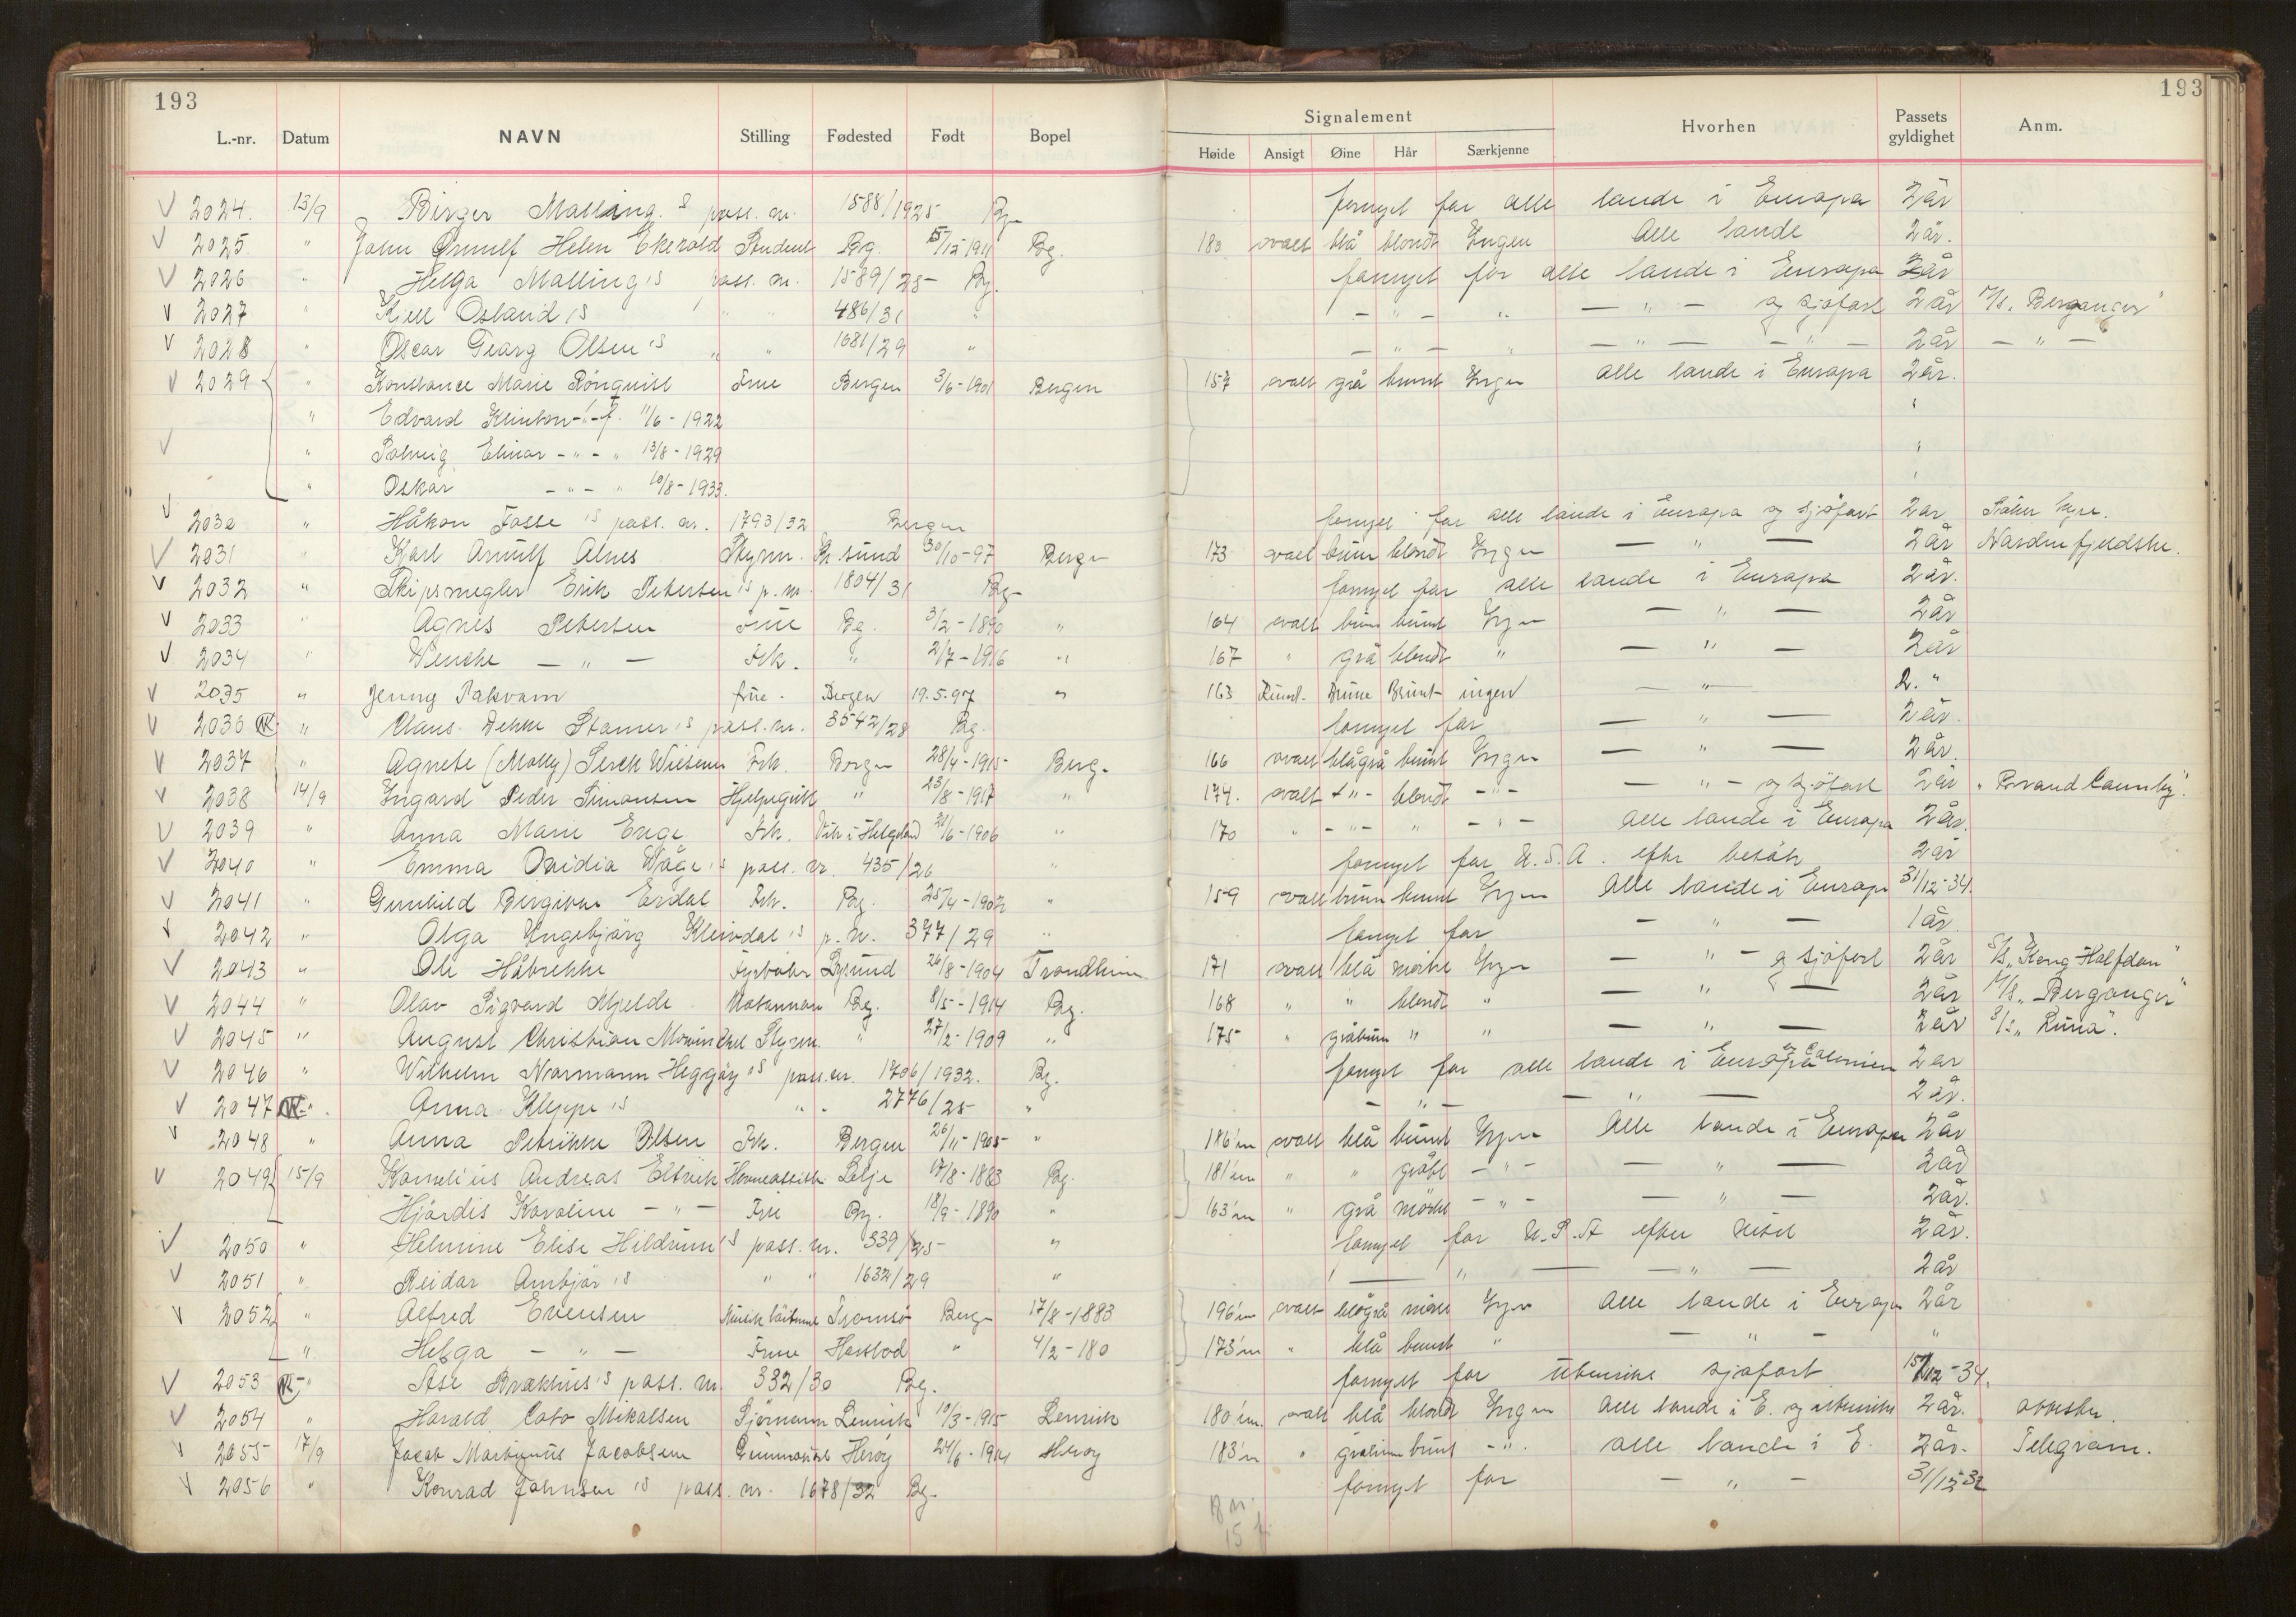 193
193
L.-nr. Datum NAVN Stilling Fødested Født Bopel
Signalement Hvorhen Passets gyldighet Anm.
Høide Ansigt Øine Hår Særkjenne
V 2024. 13/9 Birger Malling's pass. nr. 1588/1925 Bg fornyet for alle lande i Europa 2 år
V 2025. " John Helen Ekerold Student Bg. /12-1911 Bg. 183 ovalt blå blondt Ingen Alle lande 2 år.
V 2026 " Helga Malling's pass. nr. 1589/25 Bg. fornyet for alle lande i Europa 2 år
V 2027 " Kjell Osland's " " 486/31 " — " — " — " — og sjøfart 2 år M/S. "Berganger"
V 2028 " Oscar Georg Olsen's " " 1681/29 " — " — " — " — — " — 2 år — " —
V 2029 " Konstance Marie Rönquist Frue Bergen 3/6-1901 Bergen 157 ovalt grå brunt Ingen Alle lande i Europa 2 år.
" Edvard - " - f. 11/6-1922 "
V " Solveig Elinor - " - " 13/8-1929 "
" Oskar - " - " 10/8-1933. "
V 2030 " Håkon Fosse's pass. nr. 1793/32 Bergen fornyet for alle lande i Europa og sjøfart 2 år
V 2031 " Karl Arnulf Alnes Styrm. Kr.sund 30/10-97 Bergen 173 ovalt brun blondt Ingen — " — 2 år Nordenfjeldske.
V 2032 " Skipsmegler Erik Petersen's p. nr. 1804/31 Bg fornyet for alle lande i Europa 2 år.
V 2033 " Agnes Petersen Frue Bg. 3/2-1890 " 164 ovalt brun brunt Ingen — " — 2 år
V 2034 " Wenche — " — Frk. " 2/7-1916 " 167 " grå blondt " — " — 2 år
V 2035 " Jenny Sakvam frue. Bergen 19.5.97 " 163 Rund. Brune Brunt ingen — " — 2. "
V 2036 NK " Claus Dekke Stamer's pass. nr. 3542/28 Bg. fornyet for — " — 2 år.
V 2037 " Agnete (Molly) Serck Wiesener Frk. Bergen 28/4-1915 Berg. 166 ovalt blågrå brunt Ingen — " — 2 år.
V 2038 14/9 Ingard Peder Simonsen " 23/8-1917 " 174. ovalt - " - blondt - " - — " — og sjøfart 2 år
V 2039 " Anna Marie Enge Frk. Vik i Helgeland /6-1906 " 170 " - " - " - " - Alle lande i Europa 2 år.
V 2040 " Emma Ovidia Våge's pass. nr. 435/26 " fornyet for U.S.A. efter besök 2 år
V 2041 " Gunhild Erdal Frk. Bg. 25/4-1902 " 159 ovalt brun brunt Ingen Alle lande i Europa 31/12-34.
V 2042 " Olga Ingebjörg Kleivdal's p. nr. 377/29 " fornyet for — " — 1 år.
V 2043 " Ole Håbrekke Fyrböter 26/8-1904 Trondheim 171 ovalt blå mörke Ingen — " — og sjöfart 2 år S/S. "Kong Halfdan"
V 2044 " Olav Sigvard Mjelde Bg. 8/5-1914 Bg. 168 " " blondt " — " — 2 år M/S. "Berganger"
V 2045 " August Christian Styrm. " 27/2-1909 " 175 " gråbrun " " — " — 2 år S/S. "Runa".
V 2046 " Wilhelm Normann Heggöy's pass. nr. 1706/1932. Bg. fornyet for alle lande i Europa og Colonien 2 år
V 2047 NK " Anna Kleppe's " " 2776/25 " — " — — " — 2 år.
V 2048 " Anna Petrikke Olsen Frk. Bergen 26/11-1905 " 186 m ovalt blå brunt Ingen Alle lande i Europa 2 år
V 2049 15/9 Kornelius Andreas Eltvik Selje 17/8-1883 Bg. 181 m " " gråbl - " - — " — 2 år
Hjördis Karoline — " — Frue Bg. 18/9-1890 " 163 m " grå mörkt - " - — " — 2 år.
V 2050 " Helmine Elise Hildrum's pass. nr. 339/25 " fornyet for U.S.A efter 2 år.
V 2051 " Reidar 's " " 1632/29 " — " — — " — 2 år
V 2052 " Alfred Evensen Tromsö Berg 17/8-1883 196 m ovalt blågrå mörkt Ingen Alle lande i Europa 2 år
" Helga — " — Frue " 4/2-180 173 m " blå brunt " — " — "
V 2053 NK " Åse Brækhus's pass. nr. 332/30 Bg. fornyet for utenriks sjöfart 15/12-34.
V 2054 " Harald Cato Mikalsen Sjömann Lenvik 10/3-1915 Lenvik 180 m. ovalt blå blondt Ingen Alle lande i E. og utenriks 2 år.
V 2055 17/9 Jacob Jacobsen Heröy 24/6-1914 Heröy 183 m " gråbrun brunt - " - alle lande i E. 2 år. Telegram.
V 2056 " Konrad Johnsen's pass. nr. 1678/32 Bg. fornyet for — " — 31/12 32
18 m.
15 k.